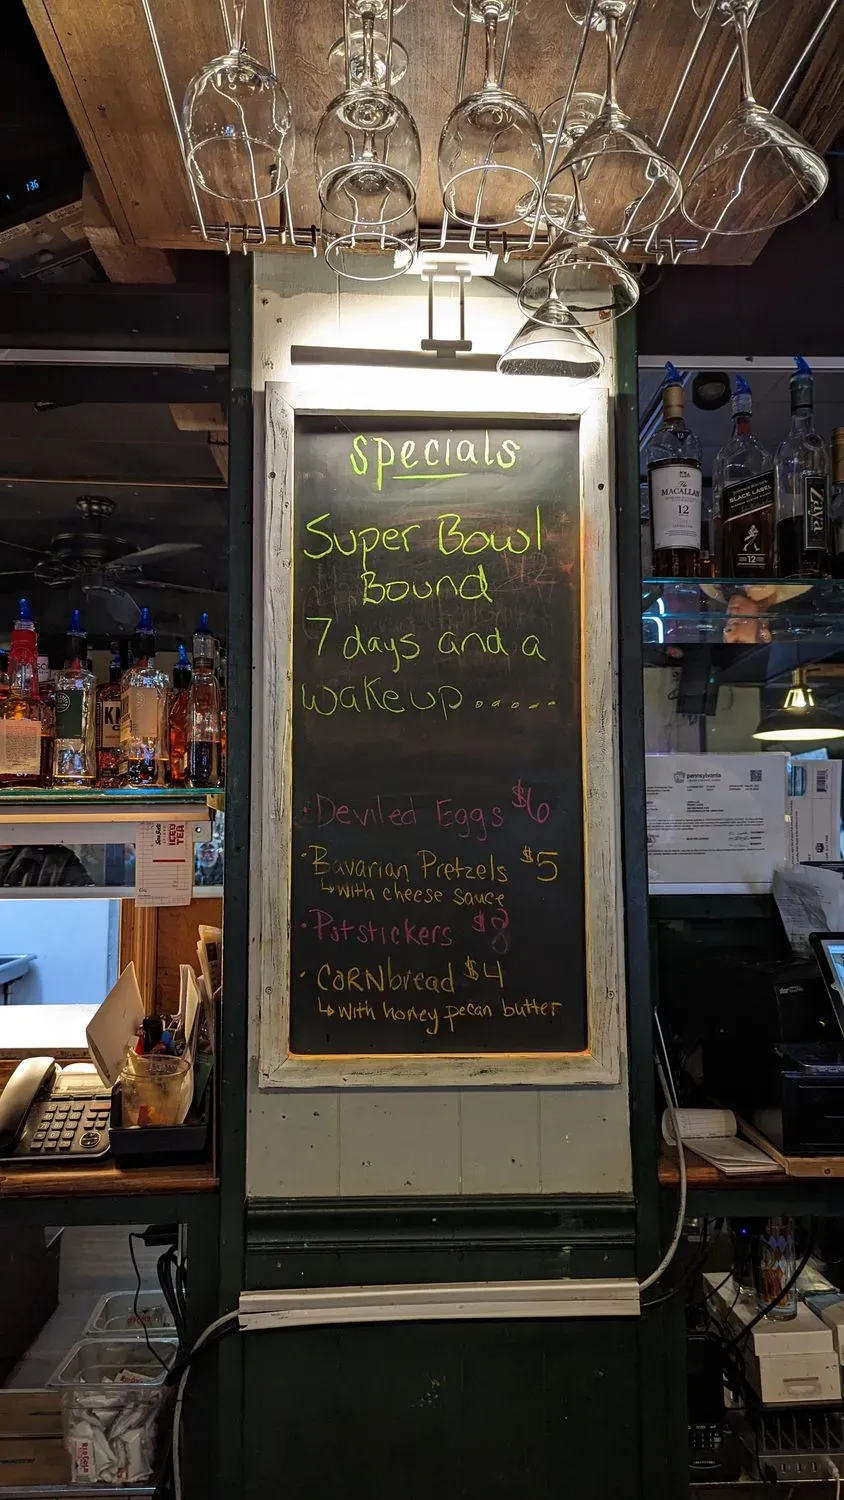 136
Specials
Super Bowl
Bound
7 days and a
wakeup.....
· Deviled Eggs $6
· Bavarian Pretzels $5
↳ with cheese sauce
· Potstickers $8
· CORNbread $4
↳ with honey pecan butter
The
MACALLAN
12
BLACK LABEL
12
Zaya
pennsylvania
ICED
TEA